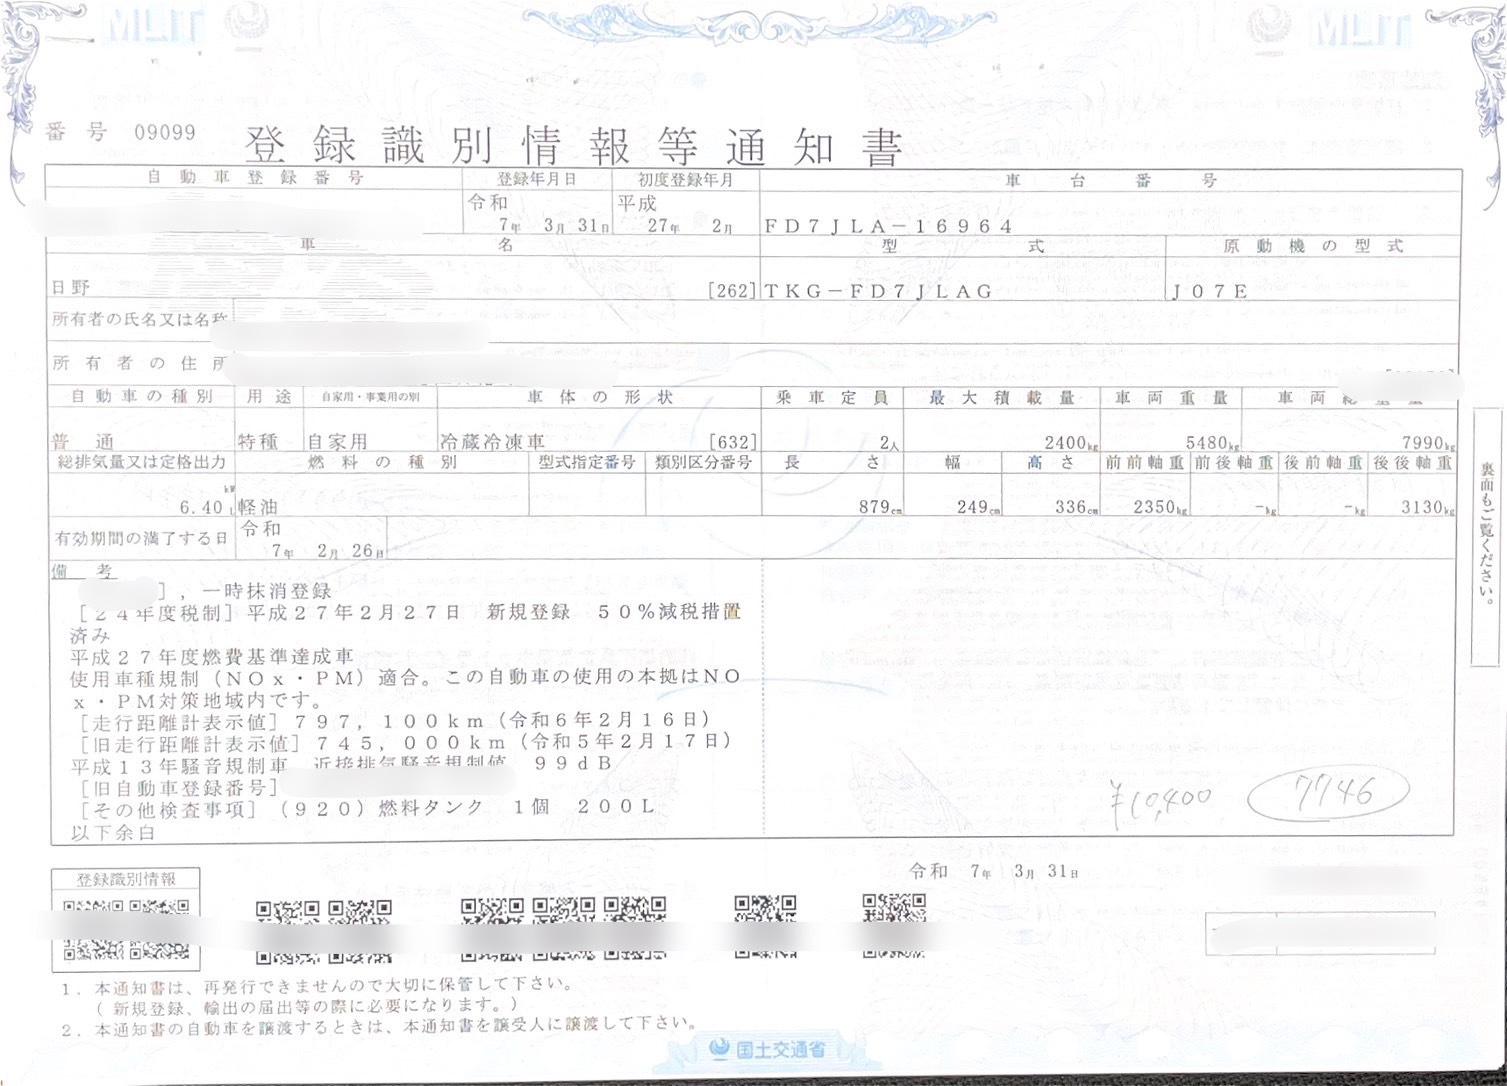 MLIT
MLIT
番号 09099 登録識別情報等通知書
自動車登録番号 登録年月日 初度登録年月 車台番号
令和 7年 3月 31日 平成 27年 2月 FD7JLA-16964
車名 型式 原動機の型式
日野 [262] TKG-FD7JLAG J07E
所有者の氏名又は名称
所有者の住所
自動車の種別 用途 自家用・事業用の別 車体の形状 乗車定員 最大積載量 車両重量 車両総重量
普通 特種 自家用 冷蔵冷凍車 [632] 2人 2400kg 5480kg 7990kg
総排気量又は定格出力 燃料の種別 型式指定番号 類別区分番号 長さ 幅 高さ 前前軸重 前後軸重 後前軸重 後後軸重
6.40 kW L 軽油 879cm 249cm 336cm 2350kg -kg -kg 3130kg
有効期間の満了する日 令和 7年 2月 26日
備考
],一時抹消登録
[24年度税制]平成27年2月27日 新規登録 50%減税措置
済み
平成27年度燃費基準達成車
使用車種規制(NOx・PM)適合。この自動車の使用の本拠はNO
x・PM対策地域内です。
[走行距離計表示値]797,100km(令和6年2月16日)
[旧走行距離計表示値]745,000km(令和5年2月17日)
平成13年騒音規制車 近接排気騒音規制値 99dB
[旧自動車登録番号]
[その他検査事項](920)燃料タンク 1個 200L
以下余白
¥10,400 7746
裏面もご覧ください。
令和 7年 3月 31日
登録識別情報
1.本通知書は、再発行できませんので大切に保管して下さい。
(新規登録、輸出の届出等の際に必要になります。)
2.本通知書の自動車を譲渡するときは、本通知書を譲受人に譲渡して下さい。
国土交通省